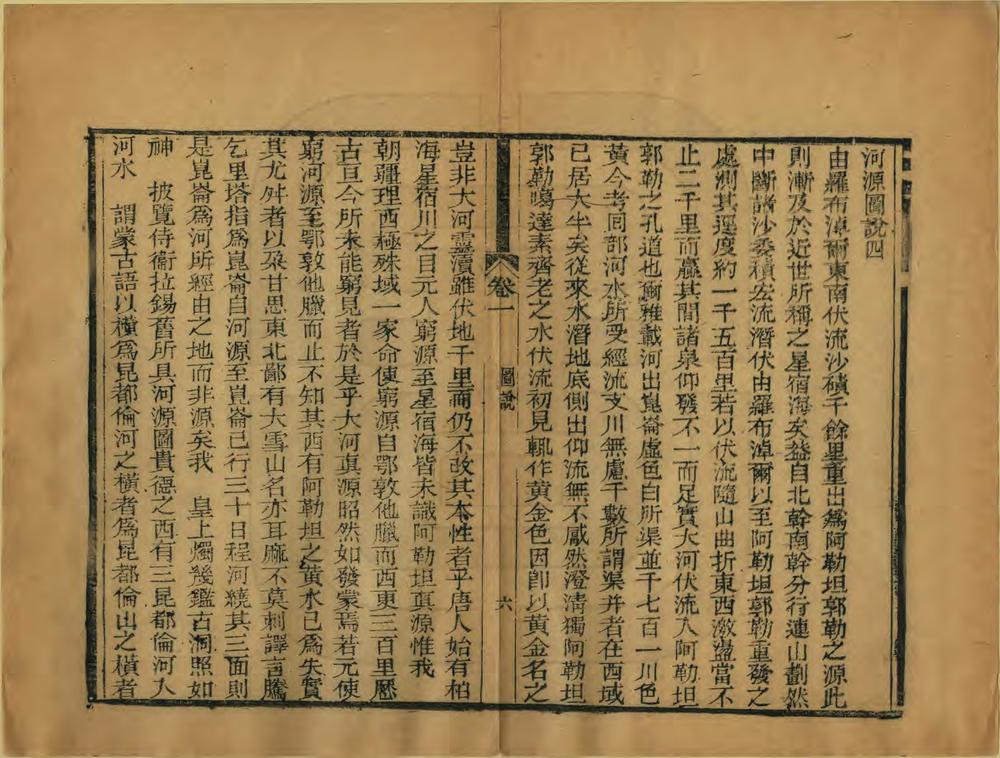 河源圖說四
由羅布淖爾東南伏流沙磧千餘里重出爲阿勒坦郭勒之源此
則漸及於近世所稱之星宿海矣蓋自北幹南幹分行連山劃然
中斷諸沙委積宏流潛伏由羅布淖爾以至阿勒坦郭勒重發之
處測其逕度約一千五百里若以伏流隨山曲折東西激盪當不
止二千里而贏其間諸泉仰發不一而足實大河伏流入阿勒坦
郭勒之孔道也爾雅載河出崑崙虛色白所渠並千七百一川色
黃今考回部河水所受經流支川無慮千數所謂渠并者在西域
已居大半矣從來水潛地底側出仰流無不感然澄清獨阿勒坦
郭勒噶達素齊老之水伏流初見輒作黃金色因卽以黃金名之
卷一
圖說
六
豈非大河靈瀆雖伏地千里而仍不改其本性者乎唐人始有柏
海星宿川之目元人窮源至星宿海皆未識阿勒坦眞源惟我
朝疆理西極殊域一家命使窮源自鄂敦他臘而西更三百里歷
古亘今所未能窮見者於是乎大河眞源昭然如發蒙焉若元使
窮河源至鄂敦他臘而止不知其西有阿勒坦之黃水已爲失實
其尤舛者以朶甘思東北鄙有大雪山名亦耳麻不莫剌譯言騰
乞里塔指爲崑崙自河源至崑崙已行三十日程河繞其三面則
是崑崙爲河所經由之地而非源矣我　皇上燭幾鑑古洞照如
神　披覽侍衞拉錫舊所具河源圖貴德之西有三昆都倫河入
河水　謂蒙古語以橫爲昆都倫河之橫者爲昆都倫山之橫者